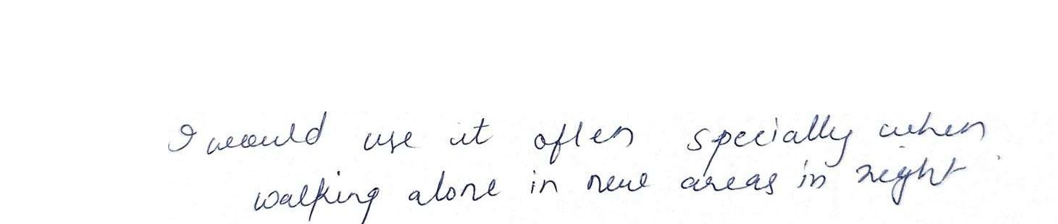 I would use it often specially when
walking alone in new areas in night